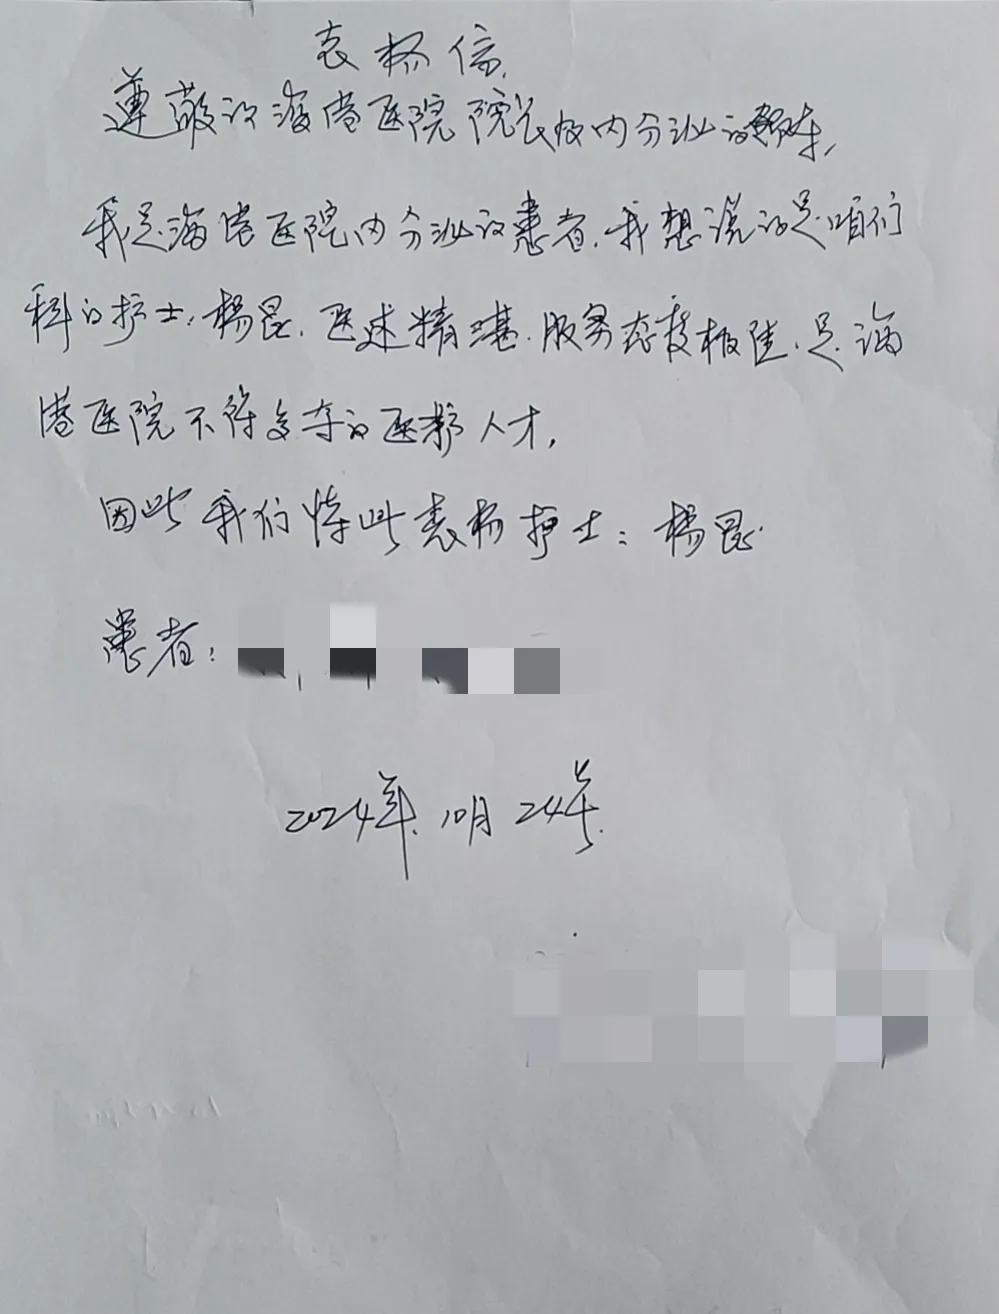 表扬信
尊敬的海港医院院长及内分泌的
我是海港医院内分泌的患者.我想说的是咱们
科的护士:杨昆.医述精湛.服务态度极佳.是海
港医院不得多夺的医疗人才,
因此我们特此表扬护士:杨昆.
患者:
2024年.10月24号.